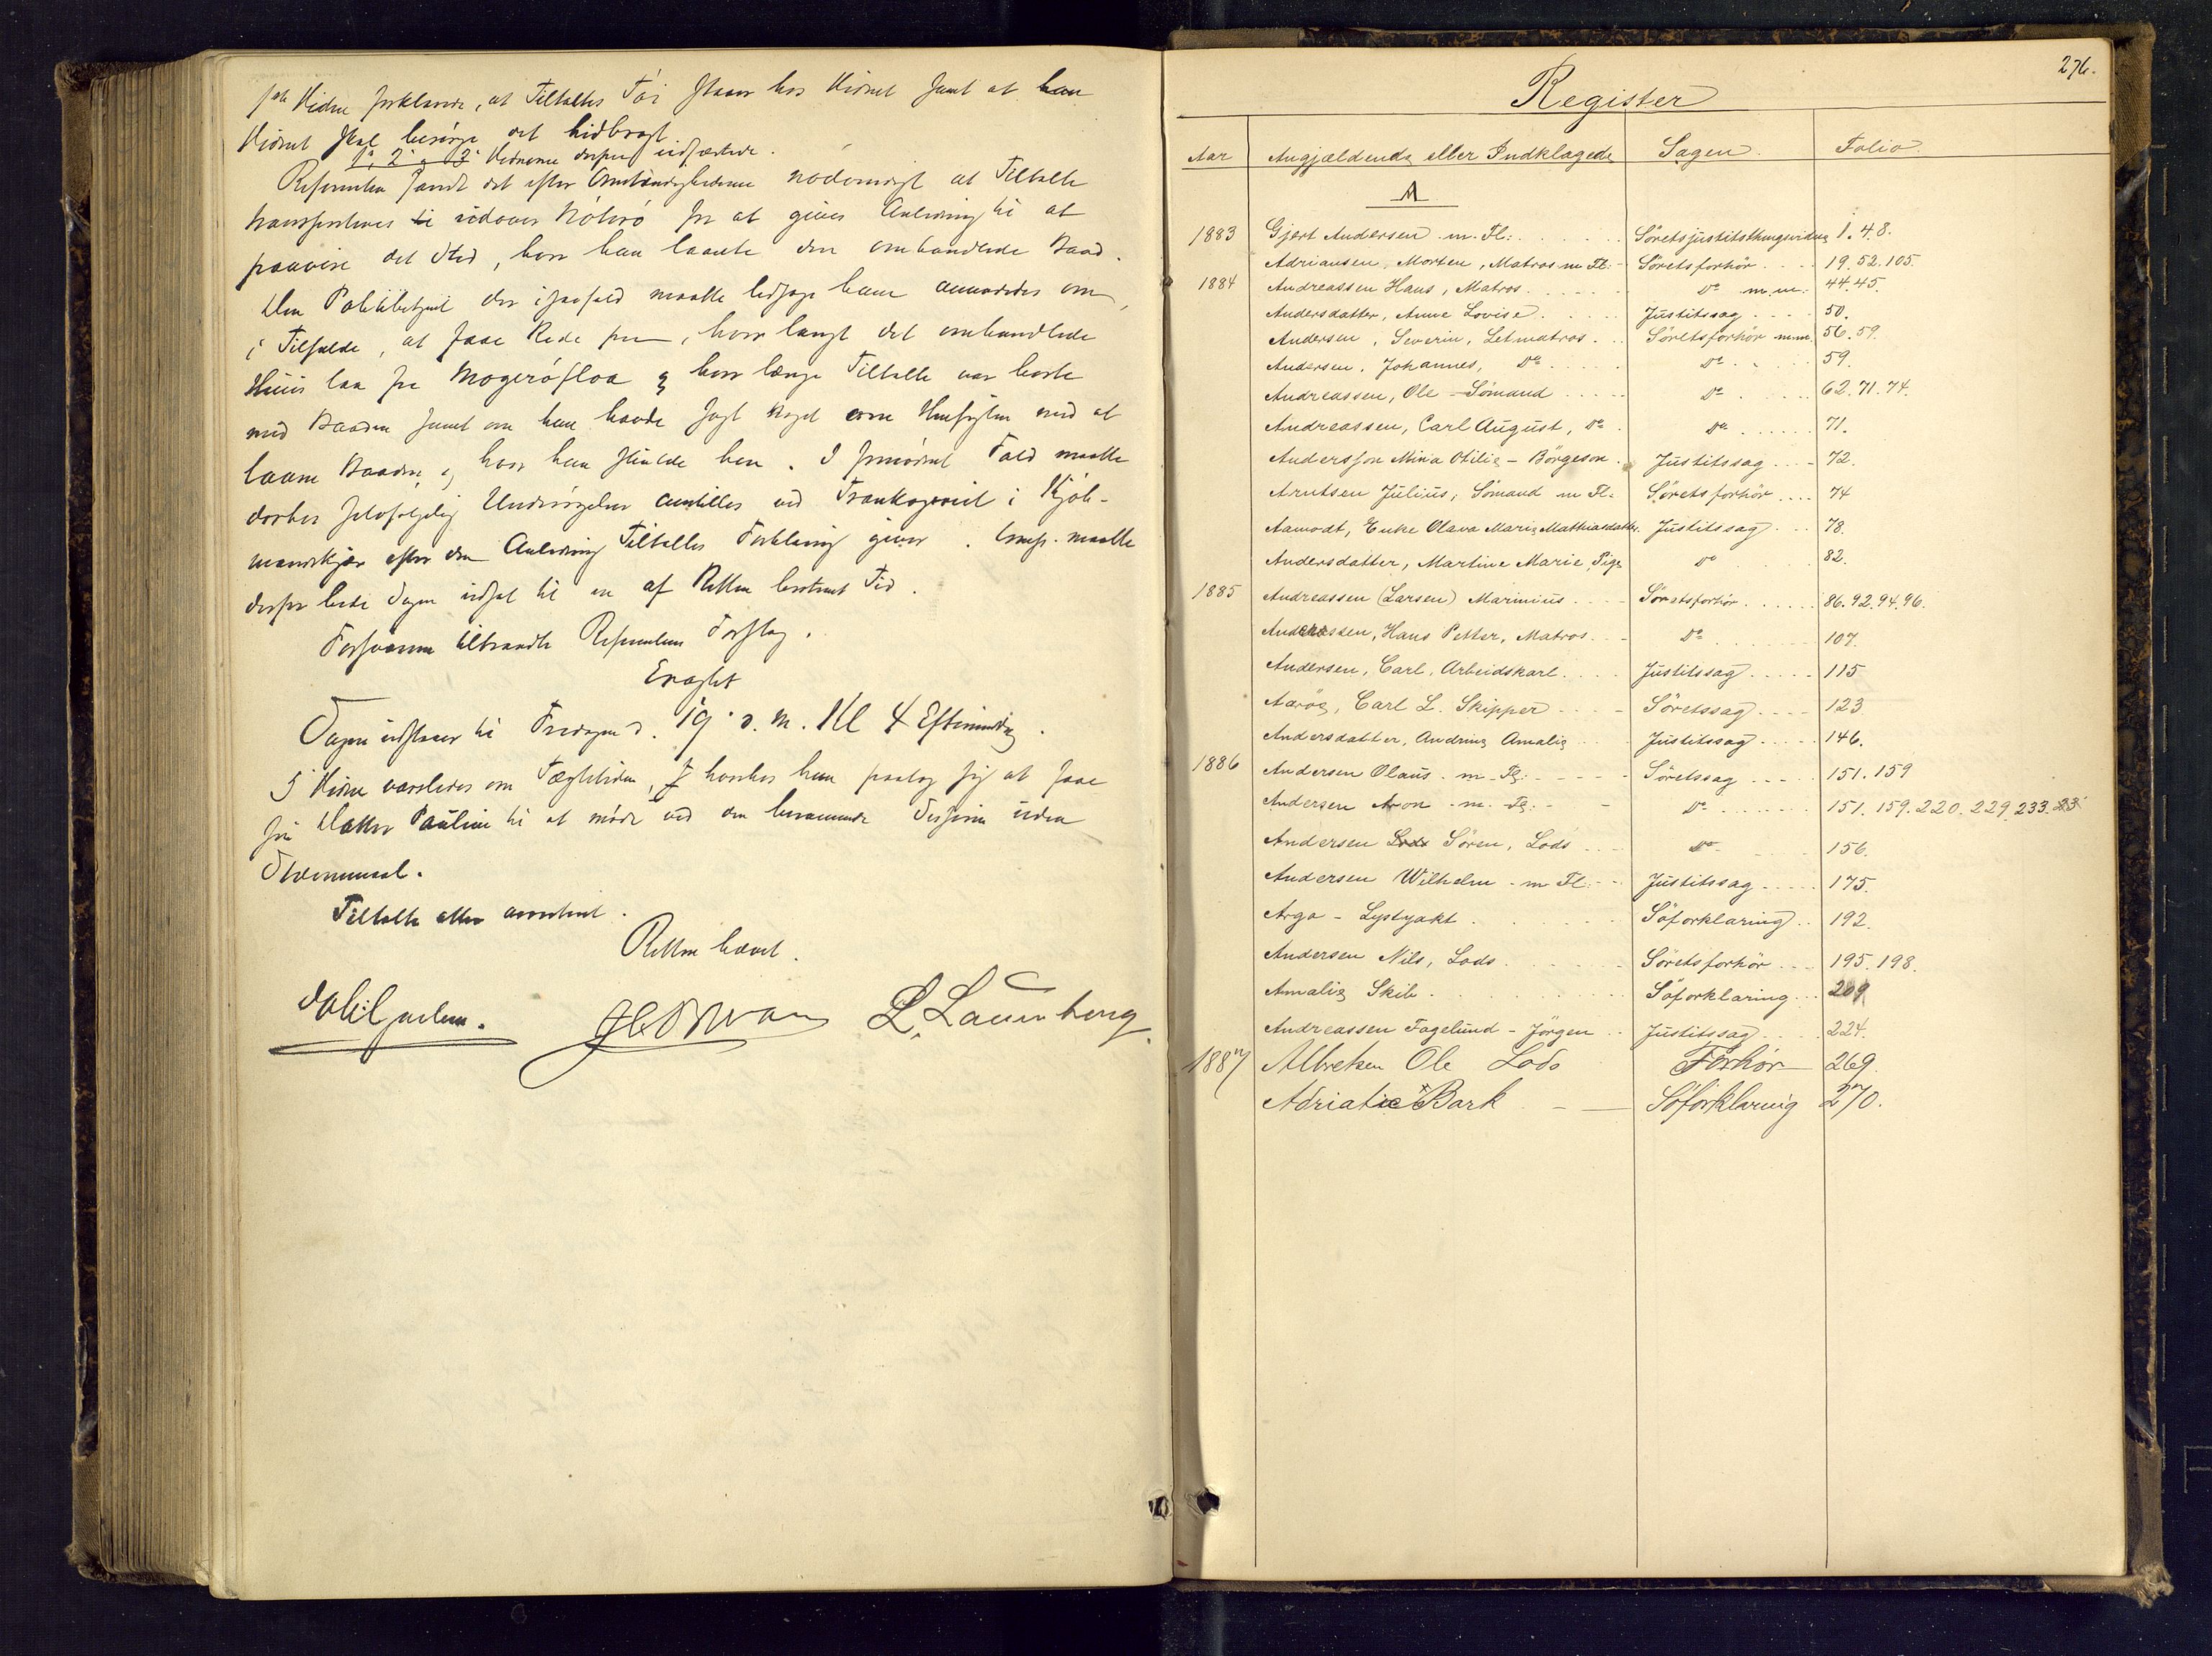 Vidne forklarede, at Tiltaltes Töi staar hos Vidnet samt at han
Vidnet skal besörge det hidbragt.
1, 2 og 3 Vidnerne derpaa
Referenten fandt det efter Omstændighederne nødvendigt at Tiltalte
transporteres udover Nöterö for at give Anledning til at
paavise det Sted, hvor han laante den omhandlede Baad.
Den Politibetjent der isaafald maatte ledsage ham anmodedes om
i Tilfælde, at faae Rede paa, hvor langt det omhandlede
Huus laa fra Mogeröfloa og hvor længe Tiltalte var borte
med Baaden samt om han havde sagt noget om Hensigten med at
laane Baaden og hvor han skulde hen. I Tald maatte
derhos selvfölgelig Undersögelser anstilles ved Trankogeriet i Kjöb-
mandskjær efter den Anledning Tiltaltes Forklaring giver. maatte
derfor bede Sagen udsat til en af Retten bestemt Tid.
Forsvareren tiltraadte Referentens Forslag.
Eragtet
Sagen udstaaer til Fredagen d. 19 d. M. Kl 4 Eftermiddag.
5 Vidne varsledes om Tægtetiden, hvorhos han paatog sig at faae
sin Datter Pauline til at möde ved den berammede Session uden
Stævnemaal.
Tiltalte atter arresteret.
Retten hævet.
L. Lauenborg
276.
Register
Aar Angjældende eller Indklagede Sagen. Folio.
A
1883 Gjert Andersen m. Fl: Söretsjustitsthingsvidne 1. 4. 8.
Adriansen, Morten, Matros m Fl: Söretsforhör 19. 52. 105.
1884 Andreassen Hans, Matros Do m.m. 44. 45.
Andersdatter, Anne Lovise Justitssag 50.
Andersen, Severin, Letmatros Söretsforhör m.m. 56. 59.
Andersen, Johannes, Do Do 59.
Andreassen, Ole - Sömand Do 62. 71. 74.
Andreassen, Carl August, Do Do 71.
Andersson Mina Otilie - Börgeson Justitssag 72.
Arntsen Julius, Sömand m Fl. Söretsforhör 74
Aamodt, Enke Olava Marie Mathiasdatter Justitssag 78.
Andersdatter, Martine Marie, Pige Do 82.
1885 Andreassen (Larsen) Marinius Söretsforhör 86. 92. 94. 96.
Andreassen, Hans Petter, Matros Do 107.
Andersen, Carl, Arbeidskarl Justitssag 115
Aaröe, Carl L. Skipper Söretssag 123
Andersdatter, Andrine Amalie Justitssag 146.
1886 Andersen Olaus m. Fl: Söretssag 151. 159
Andersen Aron m. Fl: Do 151. 159. 220. 229. 233.
Andersen Sören, Lods Do 156.
Andersen Wilhelm m Fl: Justitssag 175.
Argo - Lystyakt Söforklaring 192.
Andersen Nils, Lods Söretsforhör 195. 198.
Amalie Skib Söforklaring 209
Andreassen Fagelund - Jörgen Justitssag 224.
1887 Albretsen Ole Lods Forhör 269.
Adriatic Bark Söforklaring 270.